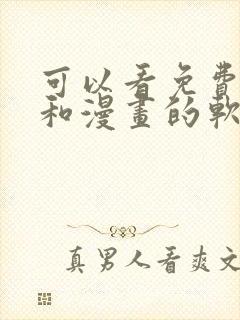 可以看免費
和漫畫的軟
真男人看爽文